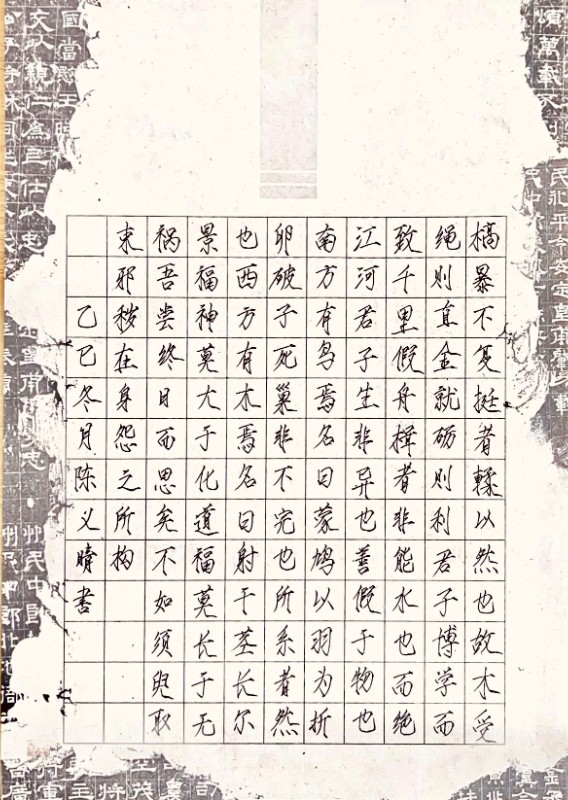 槁暴不复挺者輮以然也故木受
绳则直金就砺则利君子博学而
致千里假舟楫者非能水也而绝
江河君子生非异也善假于物也
南方有鸟焉名曰蒙鸠以羽为折
卵破子死巢非不完也所系者然
也西方有木焉名曰射干茎长尔
景福神莫大于化道福莫长于无
祸吾尝终日而思矣不如须臾取
束邪秽在身怨之所构
乙巳冬月陈义晴书